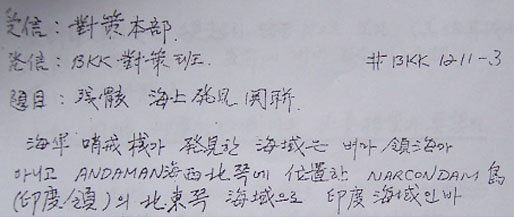 受信 : 對策本部.
発信 : BKK 對策班. # BKK 1211-3
題目 : 残骸 海上 発見 関聯.
海軍 哨戒机가 発見한 海域은 버마 領海아
아니고 ANDAMAN海 西北쪽에 位置한 NARCONDAM 島
(印度領)의 北東쪽 海域으로 印度海域인바